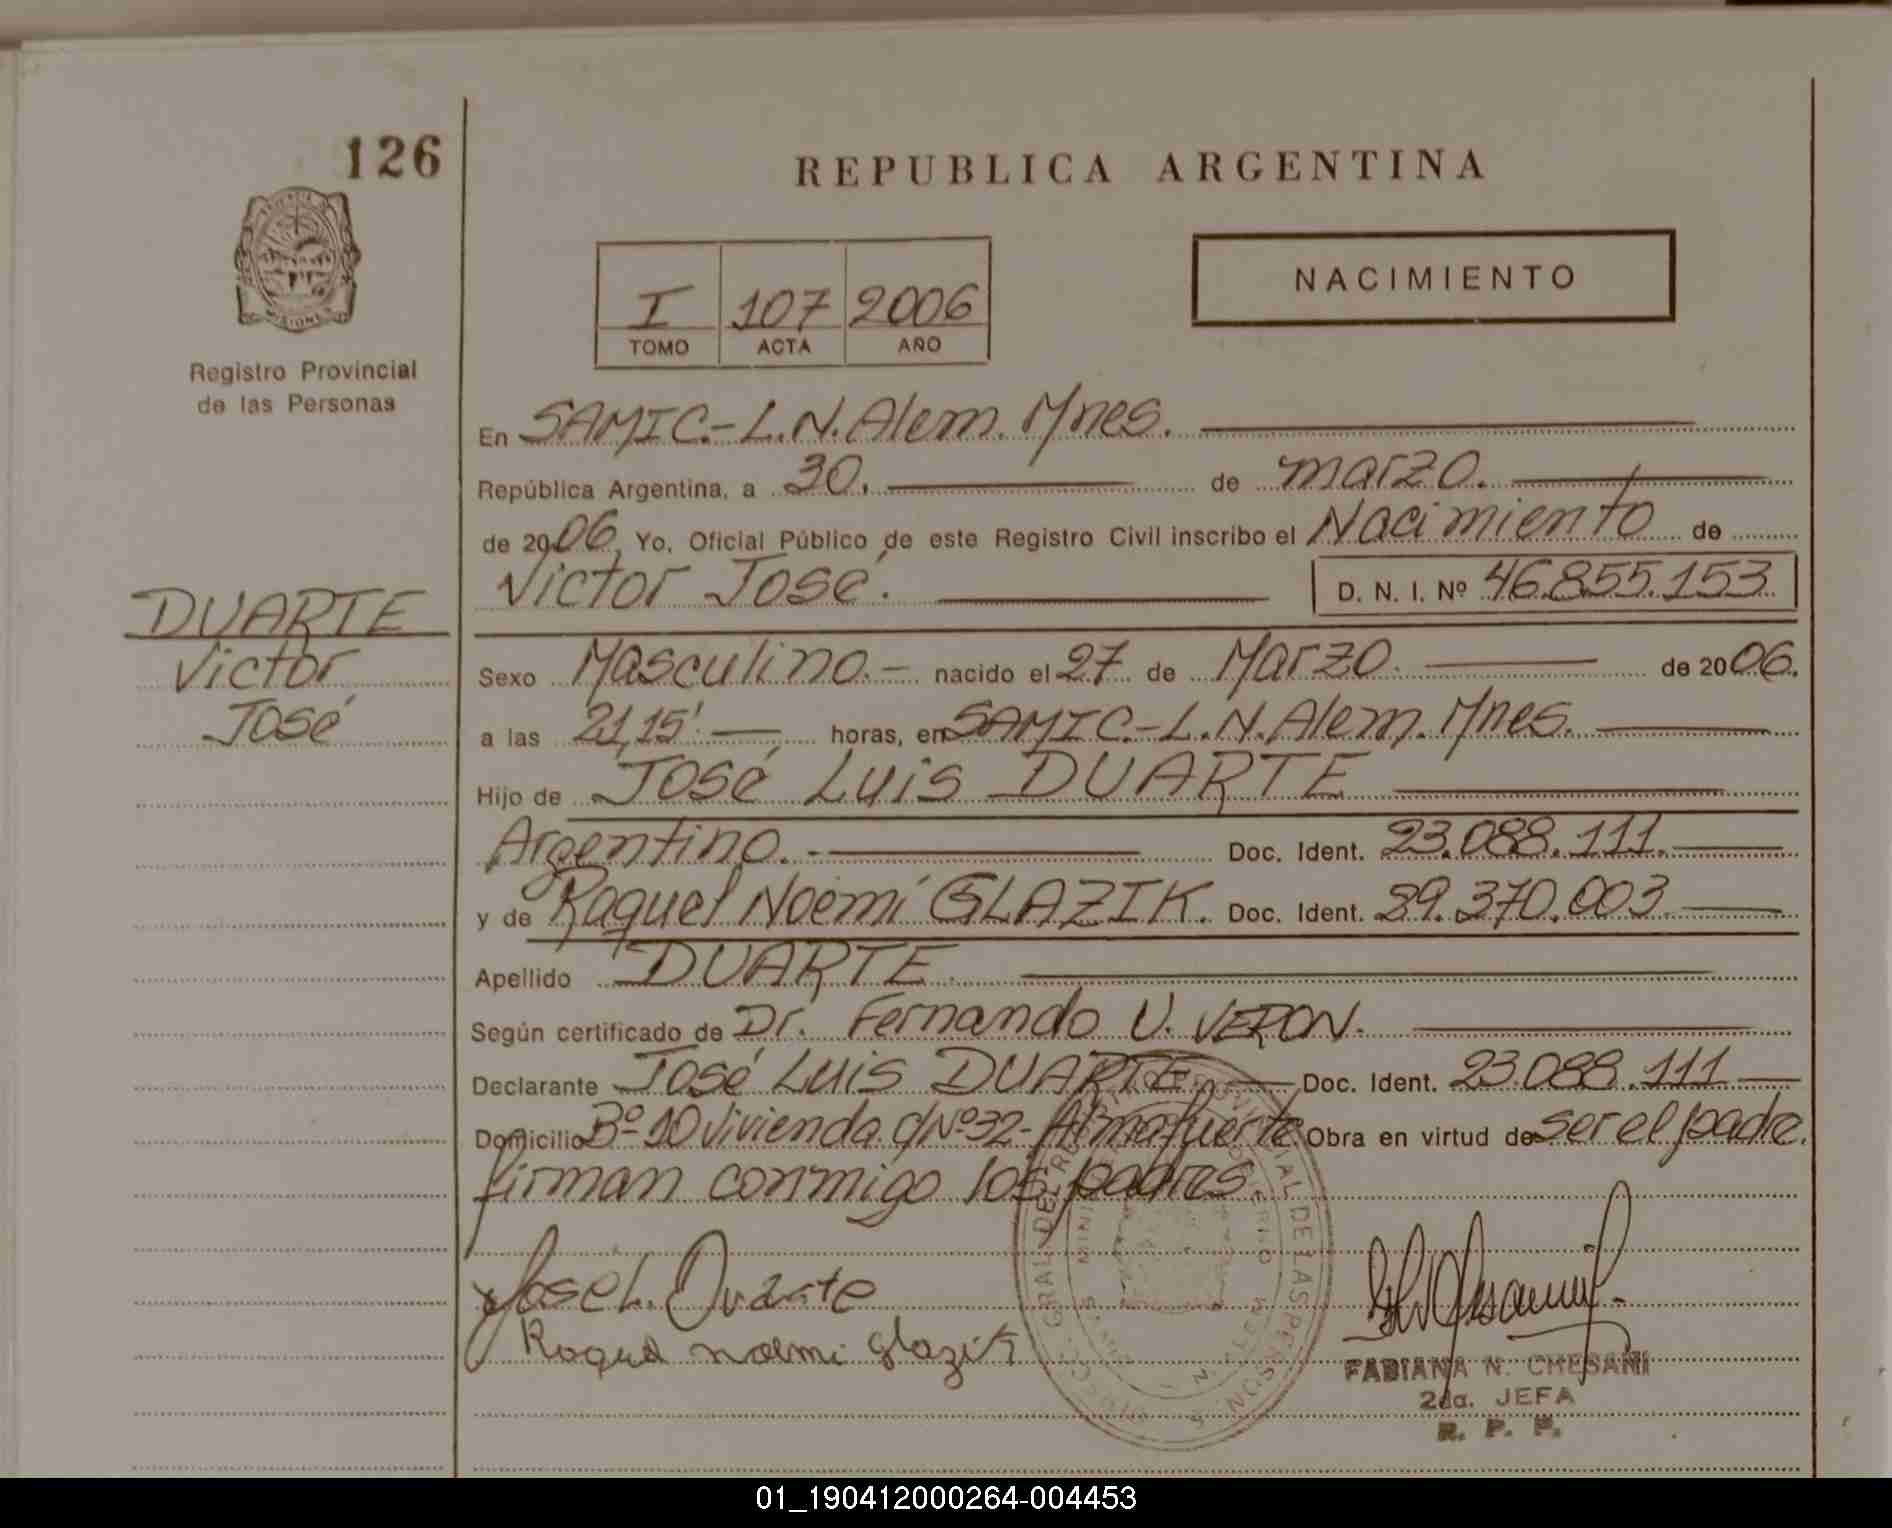 126
REPUBLICA ARGENTINA
I 107 2006
TOMO ACTA AÑO
NACIMIENTO
MISIONES
Registro Provincial
de las Personas
En SAMIC.-L.N.Alem.Mnes.
República Argentina, a 30. de marzo.
de 2006, Yo, Oficial Público de este Registro Civil inscribo el Nacimiento de
Victor José. D. N. I. Nº 46.855.153
DUARTE
Victor
José
Sexo Masculino.- nacido el 27 de Marzo. de 2006.
a las 21,15' horas, en SAMIC.-L.N.Alem.Mnes.
Hijo de José Luis DUARTE
Argentino.- Doc. Ident. 23.088.111.
y de Raquel Noemí GLAZIK. Doc. Ident. 29.370.003
Apellido DUARTE.
Según certificado de Dr. Fernando U. VERON.
Declarante José Luis DUARTE Doc. Ident. 23.088.111
Domicilio Bº 10 Vivienda c/Nº32- Almafuerte. Obra en virtud de ser el padre.
firman conmigo los padres
José L. Duarte
Raquel noemi glazik
FABIANA N. CHESANI
2da. JEFA
R. P. P.
01_190412000264-004453